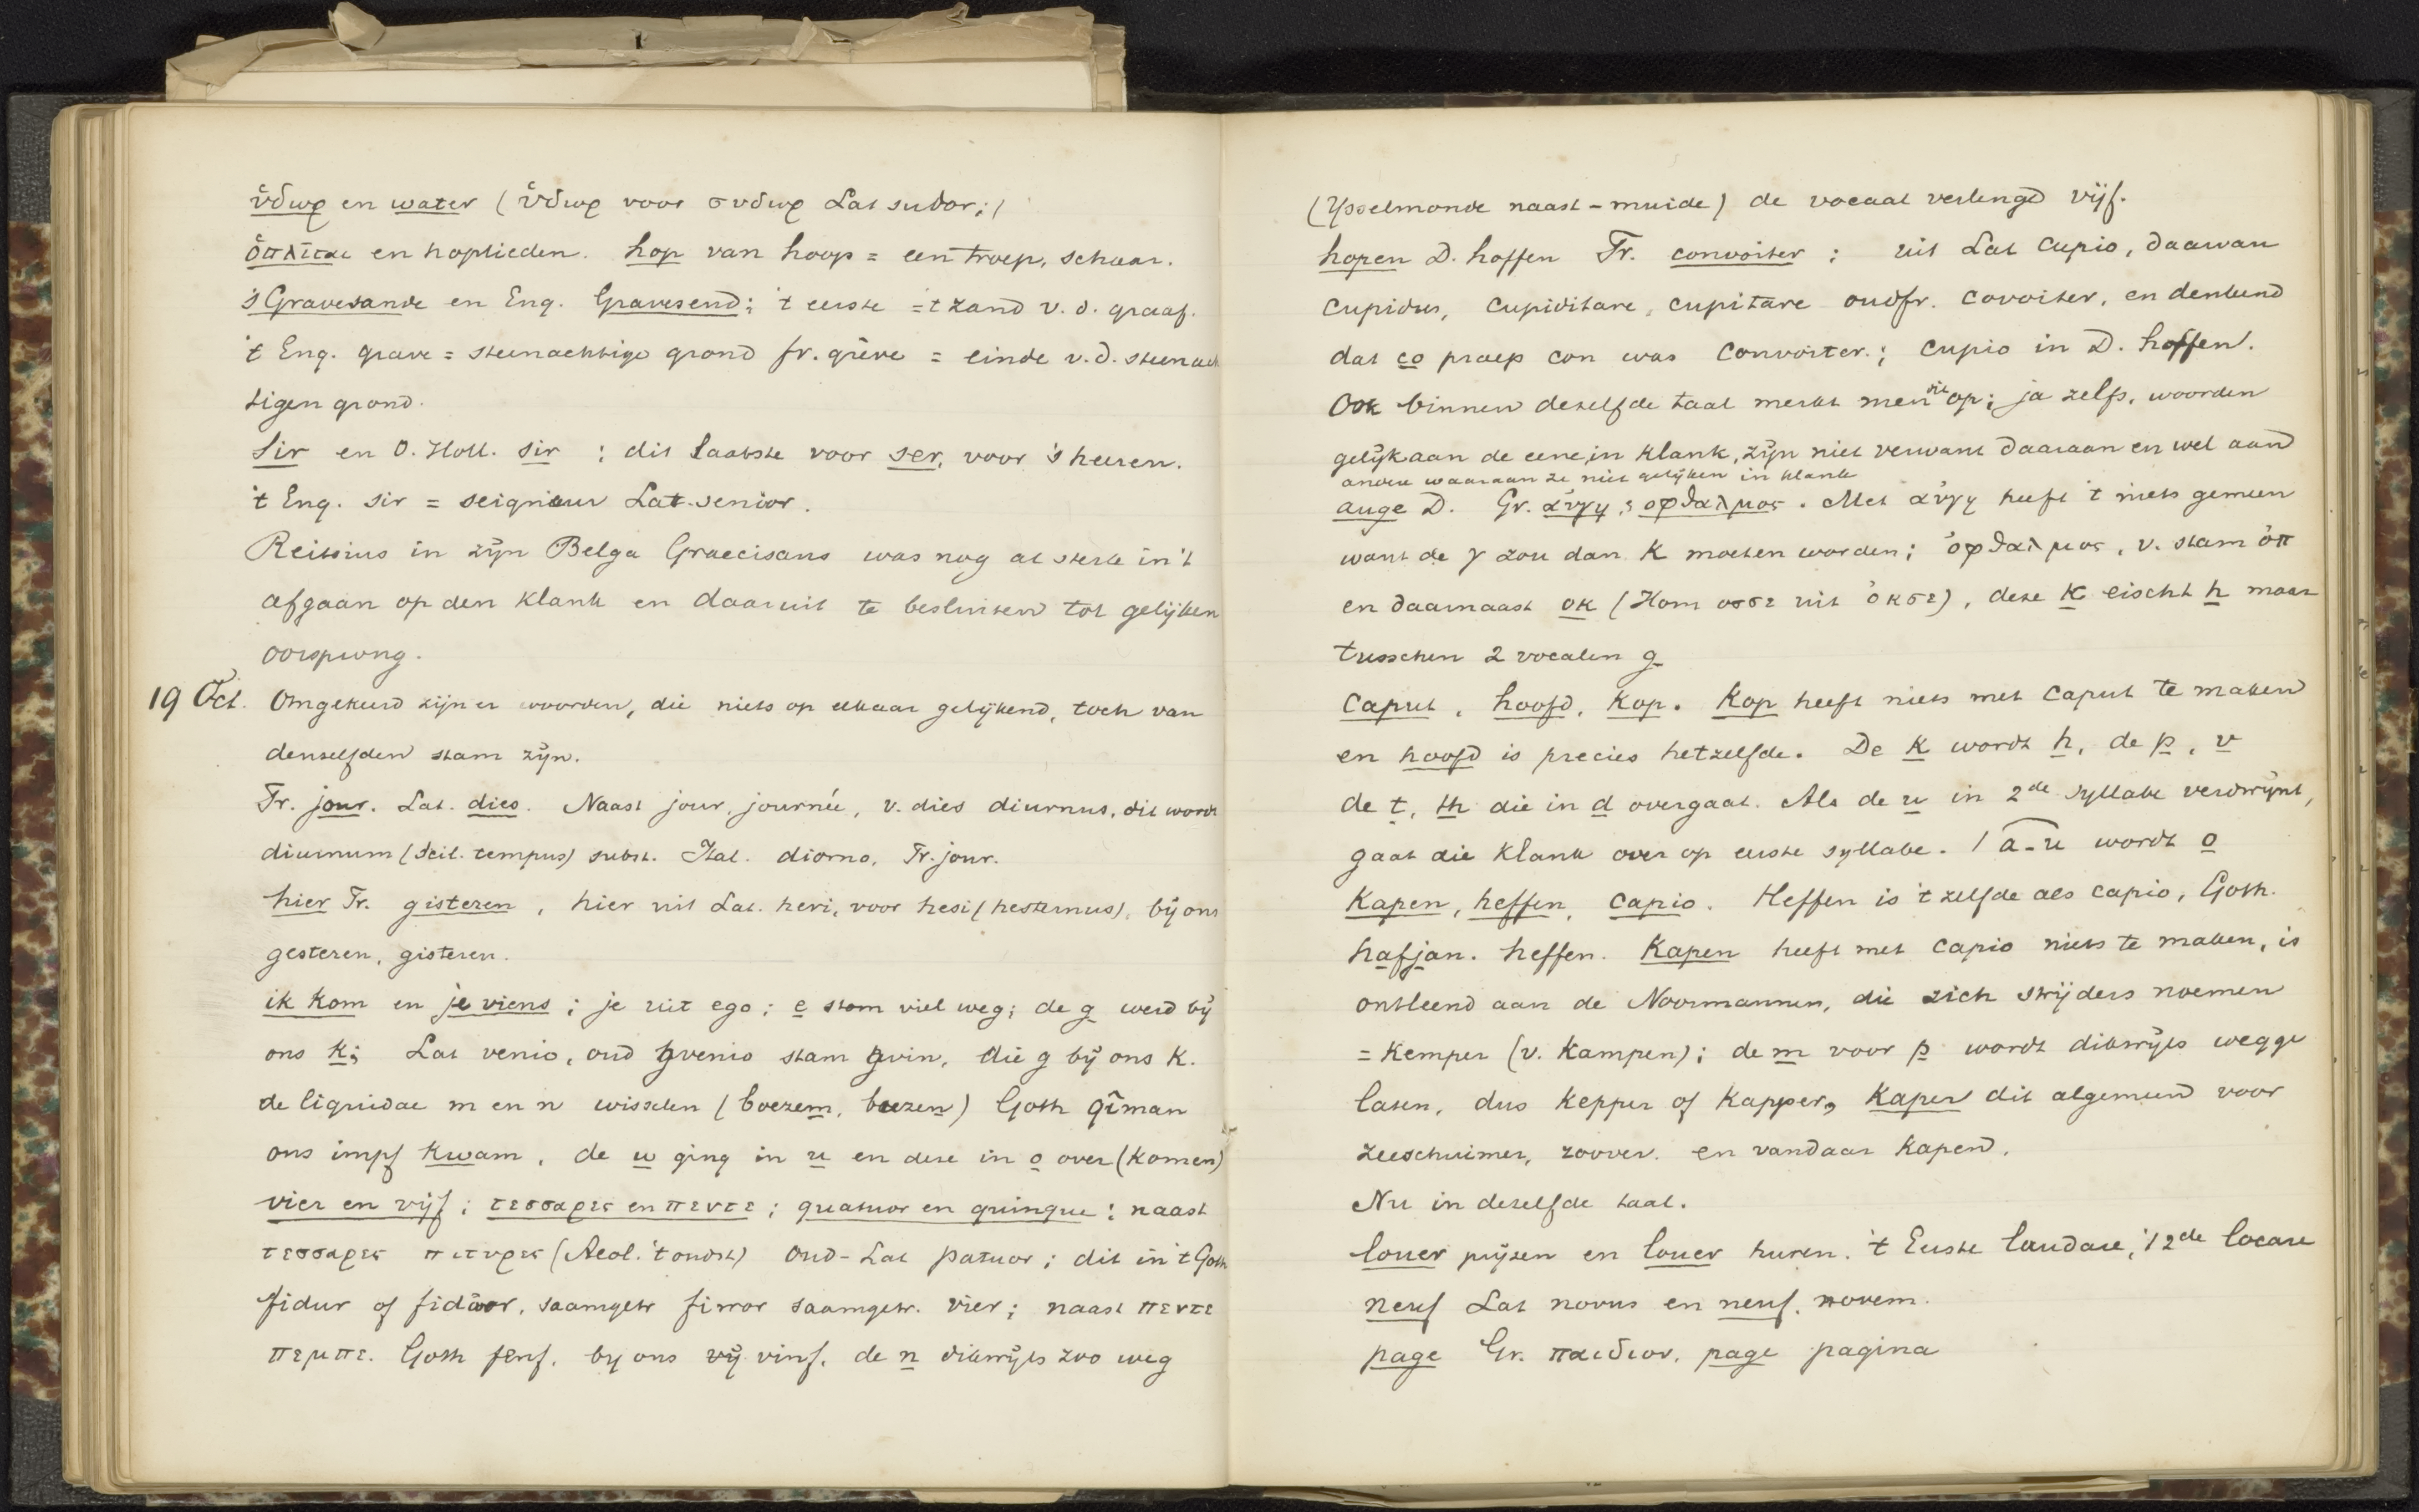 ὕδωρ en water (ὕδωρ voor συδωρ Lat sudor;)
ὁπλῖται en hoplieden. hop van hoop = een troep, schaar.
's Gravesande en Eng. Gravesend; 't eerste = 't zand v. d. graaf.
't Eng. grave = steenachtige grond fr. grève = einde v. d. steenach
tigen grond.
Sir en O. Holl. sir ; dit laatste voor ser, voor 's heeren.
't Eng. sir = seigneur Lat senior.
Reitsius in zijn Belga Graecisans was nog al sterk in 't
afgaan op den klank en daaruit te besluiten tot gelijken
oorsprong.
19 Oct. Omgekeerd zijn er woorden, die niets op elkaar gelijkend, toch van
denzelfden stam zijn.
Fr. jour. Lat. dies. Naast jour, journée, v. dies diurnus, dit wordt
diurnum (Scil. tempus) subst. Ital. diorno, Fr. jour.
hier Fr. gisteren, hier uit Lat. heri, voor hesi (hesternus), bij ons
gesteren, gisteren.
ik kom en je viens ; je uit ego ; e stom viel weg; de g werd bij
ons k; Lat venio, oud gvenio stam gvin, die g bij ons k.
de liquidae m en n wisselen (boezem, boezen) Goth qiman
ons impf kwam, de w ging in u en deze in o over (komen)
vier en vijf ; τεσσαρες en πεντε ; quatuor en quinque ; naast
τεσσαρες πιτυρες (Aeol. 't oudst) Oud-Lat patuor ; dit in 't Goth
fidur of fidwor, saamgetr fiwor saamgetr. vier ; naast πεντε
πεμπε. Goth fenf, bij ons vij vinf, de n dikwijls zoo weg
(IJsselmonde naast -muide) de vocaal verlengd vijf.
hopen D. hoffen Fr. convoiter ; uit Lat cupio, daarvan
cupidus, cupiditare, cupitare oudfr. covoiter, en denkend
dat co praep con was convoiter ; cupio in D. hoffen.
Ook binnen dezelfde taal merkt men dit op; ja zelfs, woorden
gelijk aan de eene in klank, zijn niet verwant daaraan en wel aan
andere waaraan ze niet gelijken in klank
auge D. Gr. αὐγη ; οφθαλμος. Met αὐγη heeft 't niets gemeen
want de γ zou dan k moeten worden; ὀφθαλμος, v. stam ὀπ
en daarnaast ok (Hom οσσε uit ὀκσε), deze k eischt h maar
tusschen 2 vocalen g
Caput, hoofd, kop. Kop heeft niets met caput te maken
en hoofd is precies hetzelfde. De k wordt h, de p, v
de t, th die in d overgaat. Als de u in 2de syllabe verdwijnt,
gaat die klank over op eerste syllabe. / a-u wordt o
Kapen, heffen, capio. Heffen is 't zelfde als capio, Goth.
hafjan. heffen. Kapen heeft met capio niets te maken, is
ontleend aan de Noormannen, die zich strijders noemen
= Kemper (v. Kampen); de m voor p wordt dikwijls wegge
laten, dus kepper of kapper, kaper dit algemeen voor
zeeschuimer, roover. en vandaar kapen.
Nu in dezelfde taal.
louer prijzen en louer huren. 't Eerste laudare, 't 2de locare
neuf Lat novus en neuf, novem.
page Gr. παιδιον, page pagina